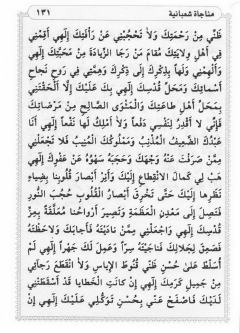 مناجاة شعبانية ١٣١
ظَنّي مِنْ رَحْمَتِكَ وَلا تَحْجُبْني عَنْ رَأْفَتِكَ اِلٰهي اَقِمْني
في اَهْلِ وِلايَتِكَ مُقامَ مَنْ رَجَا الزِّيادَةَ مِنْ مَحَبَّتِكَ اِلٰهي
وَاَلْهِمْني وَلَهاً بِذِكْرِكَ اِلٰى ذِكْرِكَ وَهِمَّتي في رَوْحِ نَجاحِ
اَسْمائِكَ وَمَحَلِّ قُدْسِكَ اِلٰهي بِكَ عَلَيْكَ اِلّا اَلْحَقْتَني
بِمَحَلِّ اَهْلِ طاعَتِكَ وَالْمَثْوَى الصّالِحِ مِنْ مَرْضاتِكَ
فَاِنّي لا اَقْدِرُ لِنَفْسي دَفْعاً وَلا اَمْلِكُ لَها نَفْعاً اِلٰهي اَنَا
عَبْدُكَ الضَّعيفُ الْمُذْنِبُ وَمَمْلُوكُكَ الْمُنيبُ فَلا تَجْعَلْني
مِمَّنْ صَرَفْتَ عَنْهُ وَجْهَكَ وَحَجَبَهُ سَهْوُهُ عَنْ عَفْوِكَ اِلٰهي
هَبْ لي كَمالَ الْاِنْقِطاعِ اِلَيْكَ وَاَنِرْ اَبْصارَ قُلُوبِنا بِضِياءِ
نَظَرِها اِلَيْكَ حَتّٰى تَخْرِقَ اَبْصارُ الْقُلُوبِ حُجُبَ النُّورِ
فَتَصِلَ اِلٰى مَعْدِنِ الْعَظَمَةِ وَتَصيرَ اَرْواحُنا مُعَلَّقَةً بِعِزِّ
قُدْسِكَ اِلٰهي وَاجْعَلْني مِمَّنْ نادَيْتَهُ فَاَجابَكَ وَلاحَظْتَهُ
فَصَعِقَ لِجَلالِكَ فَناجَيْتَهُ سِرّاً وَعَمِلَ لَكَ جَهْراً اِلٰهي لَمْ
اُسَلِّطْ عَلٰى حُسْنِ ظَنّي قُنُوطَ الْاِياسِ وَلَا انْقَطَعَ رَجائي
مِنْ جَميلِ كَرَمِكَ اِلٰهي اِنْ كانَتِ الْخَطايا قَدْ اَسْقَطَتْني
لَدَيْكَ فَاصْفَحْ عَنّي بِحُسْنِ تَوَكُّلي عَلَيْكَ اِلٰهي اِنْ